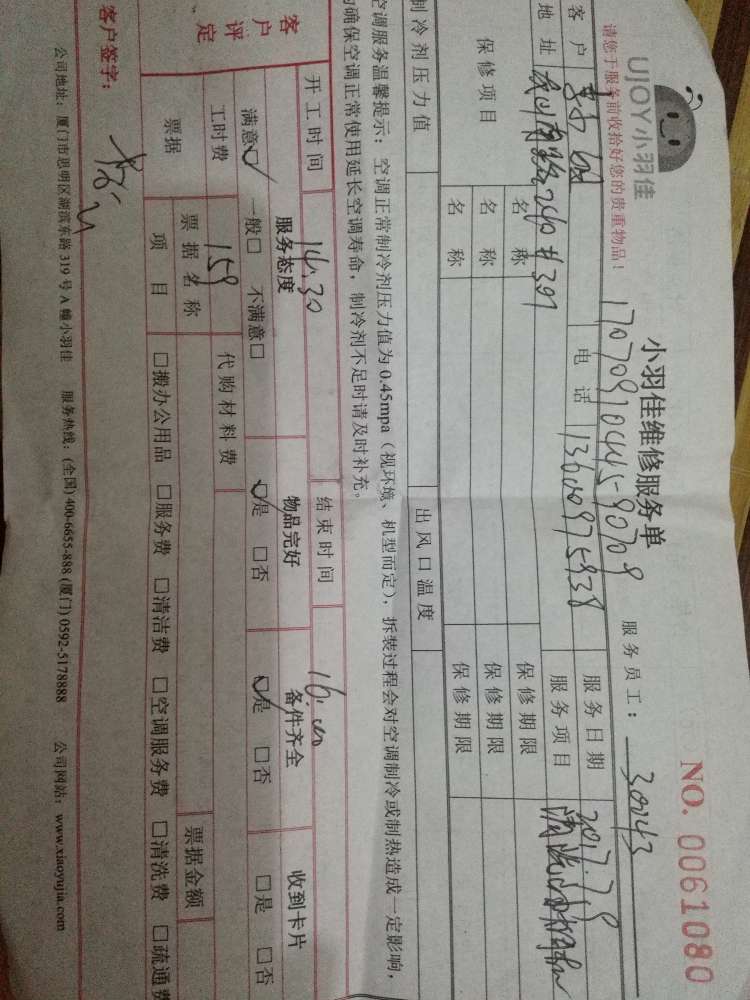 UJOY小羽佳
小羽佳维修服务单
NO. 0061080
请您于服务前收拾好您的贵重物品！
170709104445-90709
服务员工：30043
客户
电话 13600975938
服务日期 2017.7.9
地址
服务项目 清洗
保修项目
名称 保修期限
名称 保修期限
名称 保修期限
制冷剂压力值 出风口温度
空调服务温馨提示：空调正常制冷剂压力值为0.45mpa（视环境、机型而定），拆装过程会对空调制冷或制热造成一定影响，
确保空调正常使用延长空调寿命，制冷剂不足时请及时补充。
开工时间 14:30 结束时间 16:00
客户评定
服务态度 物品完好 备件齐全 收到卡片
满意☑ 一般□ 不满意□ ☑是 □否 ☑是 □否 □是 □否
工时费 159 代购材料费
票据 票据名称 票据金额
项目 □搬办公用品 □服务费 □清洁费 □空调服务费 □清洗费 □疏通费
客户签字：
公司地址：厦门市思明区湖滨东路319号A幢小羽佳 服务热线：(全国) 400-6655-888 (厦门) 0592-5178888 公司网站：www.xiaoyujia.com